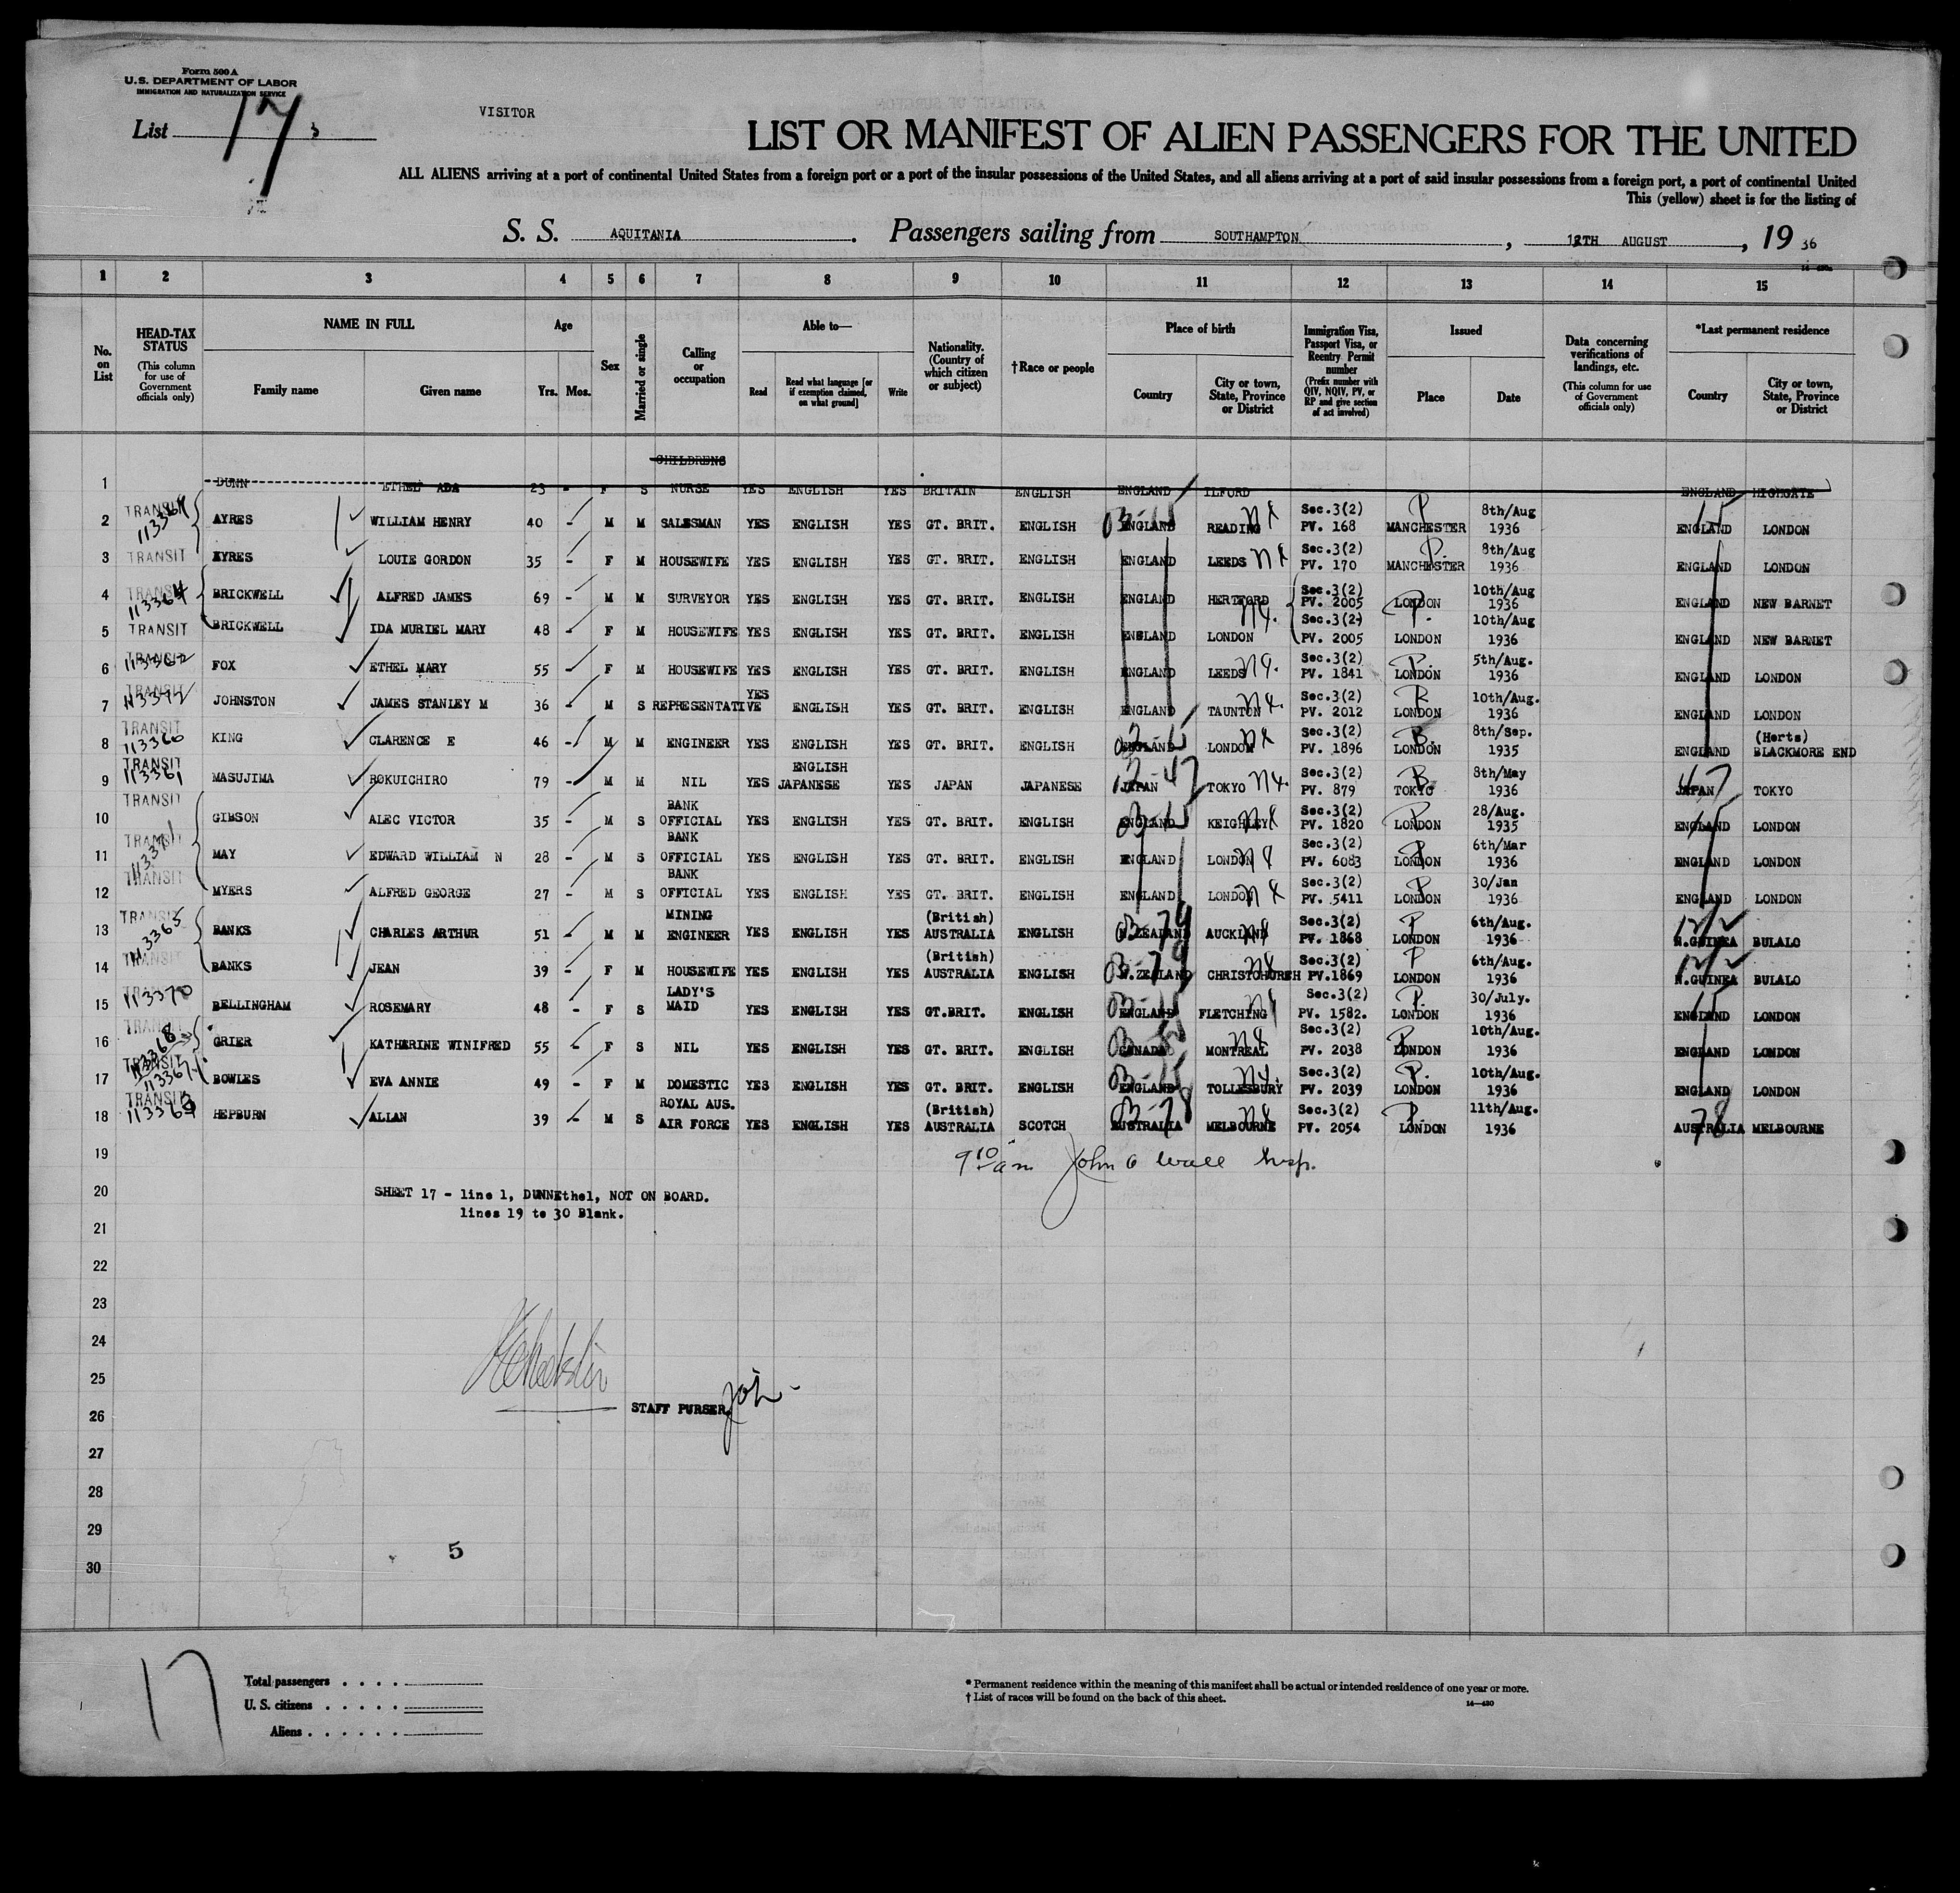 Form 500 A
U.S. DEPARTMENT OF LABOR
IMMIGRATION AND NATURALIZATION SERVICE
VISITOR
List 17 3
LIST OR MANIFEST OF ALIEN PASSENGERS FOR THE UNITED
ALL ALIENS arriving at a port of continental United States from a foreign port or a port of the insular possessions of the United States, and all aliens arriving at a port of said insular possessions from a foreign port, a port of continental United
This (yellow) sheet is for the listing of
S. S. AQUITANIA. Passengers sailing from SOUTHAMPTON, 12TH AUGUST, 19 36
1 2 3 4 5 6 7 8 9 10 11 12 13 14 15
No. on List
HEAD-TAX STATUS (This column for use of Government officials only)
NAME IN FULL Family name Given name
Age Yrs. Mos.
Sex
Married or single
Calling or occupation
Able to— Read Read what language [or if exemption claimed, on what ground] Write
Nationality. (Country of which citizen or subject)
†Race or people
Place of birth Country City or town, State, Province or District
Immigration Visa, Passport Visa, or Reentry Permit number (Prefix number with QIV, NQIV, PV, or RP and give section of act involved)
Issued Place Date
Data concerning verifications of landings, etc. (This column for use of Government officials only)
*Last permanent residence Country City or town, State, Province or District
CHILDRENS
1 DUNN ETHEL ADA 23 - F S NURSE YES ENGLISH YES BRITAIN ENGLISH ENGLAND ILFORD ENGLAND HIGHGATE
2 TRANSIT AYRES WILLIAM HENRY 40 - M M SALESMAN YES ENGLISH YES GT. BRIT. ENGLISH ENGLAND READING Sec.3(2) PV. 168 MANCHESTER 8th/Aug 1936 ENGLAND LONDON
3 TRANSIT AYRES LOUIE GORDON 35 - F M HOUSEWIFE YES ENGLISH YES GT. BRIT. ENGLISH ENGLAND LEEDS Sec.3(2) PV. 170 MANCHESTER 8th/Aug 1936 ENGLAND LONDON
4 TRANSIT 113364 BRICKWELL ALFRED JAMES 69 - M M SURVEYOR YES ENGLISH YES GT. BRIT. ENGLISH ENGLAND HERTFORD Sec.3(2) PV. 2005 LONDON 10th/Aug 1936 ENGLAND NEW BARNET
5 TRANSIT BRICKWELL IDA MURIEL MARY 48 - F M HOUSEWIFE YES ENGLISH YES GT. BRIT. ENGLISH ENGLAND LONDON Sec.3(2) PV. 2005 LONDON 10th/Aug 1936 ENGLAND NEW BARNET
6 TRANSIT 113362 FOX ETHEL MARY 55 - F M HOUSEWIFE YES ENGLISH YES GT. BRIT. ENGLISH ENGLAND LEEDS Sec.3(2) PV. 1841 LONDON 5th/Aug. 1936 ENGLAND LONDON
7 TRANSIT 113372 JOHNSTON JAMES STANLEY M 36 - M S REPRESENTATIVE YES ENGLISH YES GT. BRIT. ENGLISH ENGLAND TAUNTON Sec.3(2) PV. 2012 LONDON 10th/Aug. 1936 ENGLAND LONDON
8 TRANSIT 113360 KING CLARENCE E 46 - M M ENGINEER YES ENGLISH YES GT. BRIT. ENGLISH ENGLAND LONDON Sec.3(2) PV. 1896 LONDON 8th/Sep. 1935 ENGLAND (Herts) BLACKMORE END
9 TRANSIT 113361 MASUJIMA ROKUICHIRO 79 - M M NIL YES ENGLISH JAPANESE YES JAPAN JAPANESE JAPAN TOKYO Sec.3(2) PV. 879 TOKYO 8th/May 1936 JAPAN TOKYO
10 TRANSIT GIBSON ALEC VICTOR 35 - M S BANK OFFICIAL YES ENGLISH YES GT. BRIT. ENGLISH ENGLAND KEIGHLEY Sec.3(2) PV. 1820 LONDON 28/Aug. 1935 ENGLAND LONDON
11 TRANSIT 113371 MAY EDWARD WILLIAM N 28 - M S BANK OFFICIAL YES ENGLISH YES GT. BRIT. ENGLISH ENGLAND LONDON Sec.3(2) PV. 6083 LONDON 6th/Mar 1936 ENGLAND LONDON
12 TRANSIT MYERS ALFRED GEORGE 27 - M S BANK OFFICIAL YES ENGLISH YES GT. BRIT. ENGLISH ENGLAND LONDON Sec.3(2) PV. 5411 LONDON 30/Jan 1936 ENGLAND LONDON
13 TRANSIT 113365 BANKS CHARLES ARTHUR 51 - M M MINING ENGINEER YES ENGLISH YES (British) AUSTRALIA ENGLISH N.ZEALAND AUCKLAND Sec.3(2) PV. 1868 LONDON 6th/Aug. 1936 N.GUINEA BULALO
14 TRANSIT BANKS JEAN 39 - F M HOUSEWIFE YES ENGLISH YES (British) AUSTRALIA ENGLISH N.ZEALAND CHRISTCHURCH Sec.3(2) PV.1869 LONDON 6th/Aug. 1936 N.GUINEA BULALO
15 TRANSIT 113370 BELLINGHAM ROSEMARY 48 - F S LADY'S MAID YES ENGLISH YES GT.BRIT. ENGLISH ENGLAND FLETCHING Sec.3(2) PV. 1582. LONDON 30/July. 1936 ENGLAND LONDON
16 TRANSIT 113368 GRIER KATHERINE WINIFRED 55 - F S NIL YES ENGLISH YES GT. BRIT. ENGLISH CANADA MONTREAL Sec.3(2) PV. 2038 LONDON 10th/Aug. 1936 ENGLAND LONDON
17 TRANSIT 113367 BOWLES EVA ANNIE 49 - F M DOMESTIC YES ENGLISH YES GT. BRIT. ENGLISH ENGLAND TOLLESBURY Sec.3(2) PV. 2039 LONDON 10th/Aug. 1936 ENGLAND LONDON
18 TRANSIT HEPBURN ALLAN 39 - M S ROYAL AUS. AIR FORCE YES ENGLISH YES (British) AUSTRALIA SCOTCH AUSTRALIA MELBOURNE Sec.3(2) PV. 2054 LONDON 11th/Aug. 1936 AUSTRALIA MELBOURNE
19 9 10 am John Wall Insp.
20 SHEET 17 - line 1, DUNNEthel, NOT ON BOARD.
lines 19 to 30 Blank.
21
22
23
24
25
STAFF PURSER.
26
27
28
29
5
30
17
Total passengers . . . .
U. S. citizens . . . . .
Aliens . . . . . .
* Permanent residence within the meaning of this manifest shall be actual or intended residence of one year or more.
† List of races will be found on the back of this sheet.
14—430